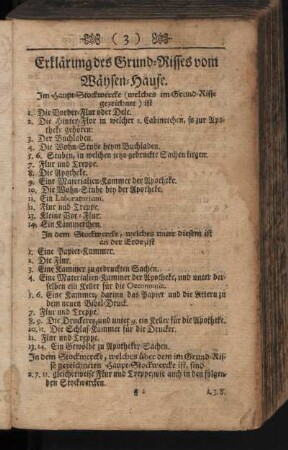 ( 3 )
Erklärung des Grund-Risses vom
Wäysen-Hause.
Im Haupt-Stockwercke (welches im Grund-Risse
gezeichnet) ist
1. Die Vorder-Flur oder Dele.
2. Die Hinter-Flur in welcher 2. Cabinetchen, so zur Apo-
theke gehören:
3. Der Buchladen.
4. Die Wohn-Stube beym Buchladen.
5. 6. Stuben, in welchen jetzo gedruckte Sachen liegen.
7. Flur und Treppe.
8. Die Apotheke.
9. Eine Materialien-Kammer der Apotheke.
10. Die Wohn-Stube bey der Apotheke.
11. Ein Laboratorium.
12. Flur und Treppe.
13. Kleine Vor-Flur.
14. Ein Kämmerchen.
In dem Stockwercke, welches unter diesem ist
an der Erde, ist
1. Eine Papier-Kammer.
2. Die Flur.
3. Eine Kammer zu gedruckten Sachen.
4. Eine Materialien-Kammer der Apotheke, und unter der-
selben ein Keller für die Oeconomie.
5. 6. Eine Kammer, darinn das Papier und die Littern zu
dem neuen Bibel-Druck.
7. Flur und Treppe.
8. 9. Die Druckerey, und unter 9. ein Keller für die Apotheke.
10. 11. Die Schlaf-Kammer für die Drucker.
12. Flur und Treppe.
13. 14. Ein Gewölbe zu Apotheker-Sachen.
In dem Stockwercke, welches über dem im Grund-Ris-
se gezeichneten Haupt-Stockwercke ist, sind
2. 7. 12. gleicherweise Flur und Treppe, wie auch in den folgen-
den Stockwercken.
1. 3. 8.